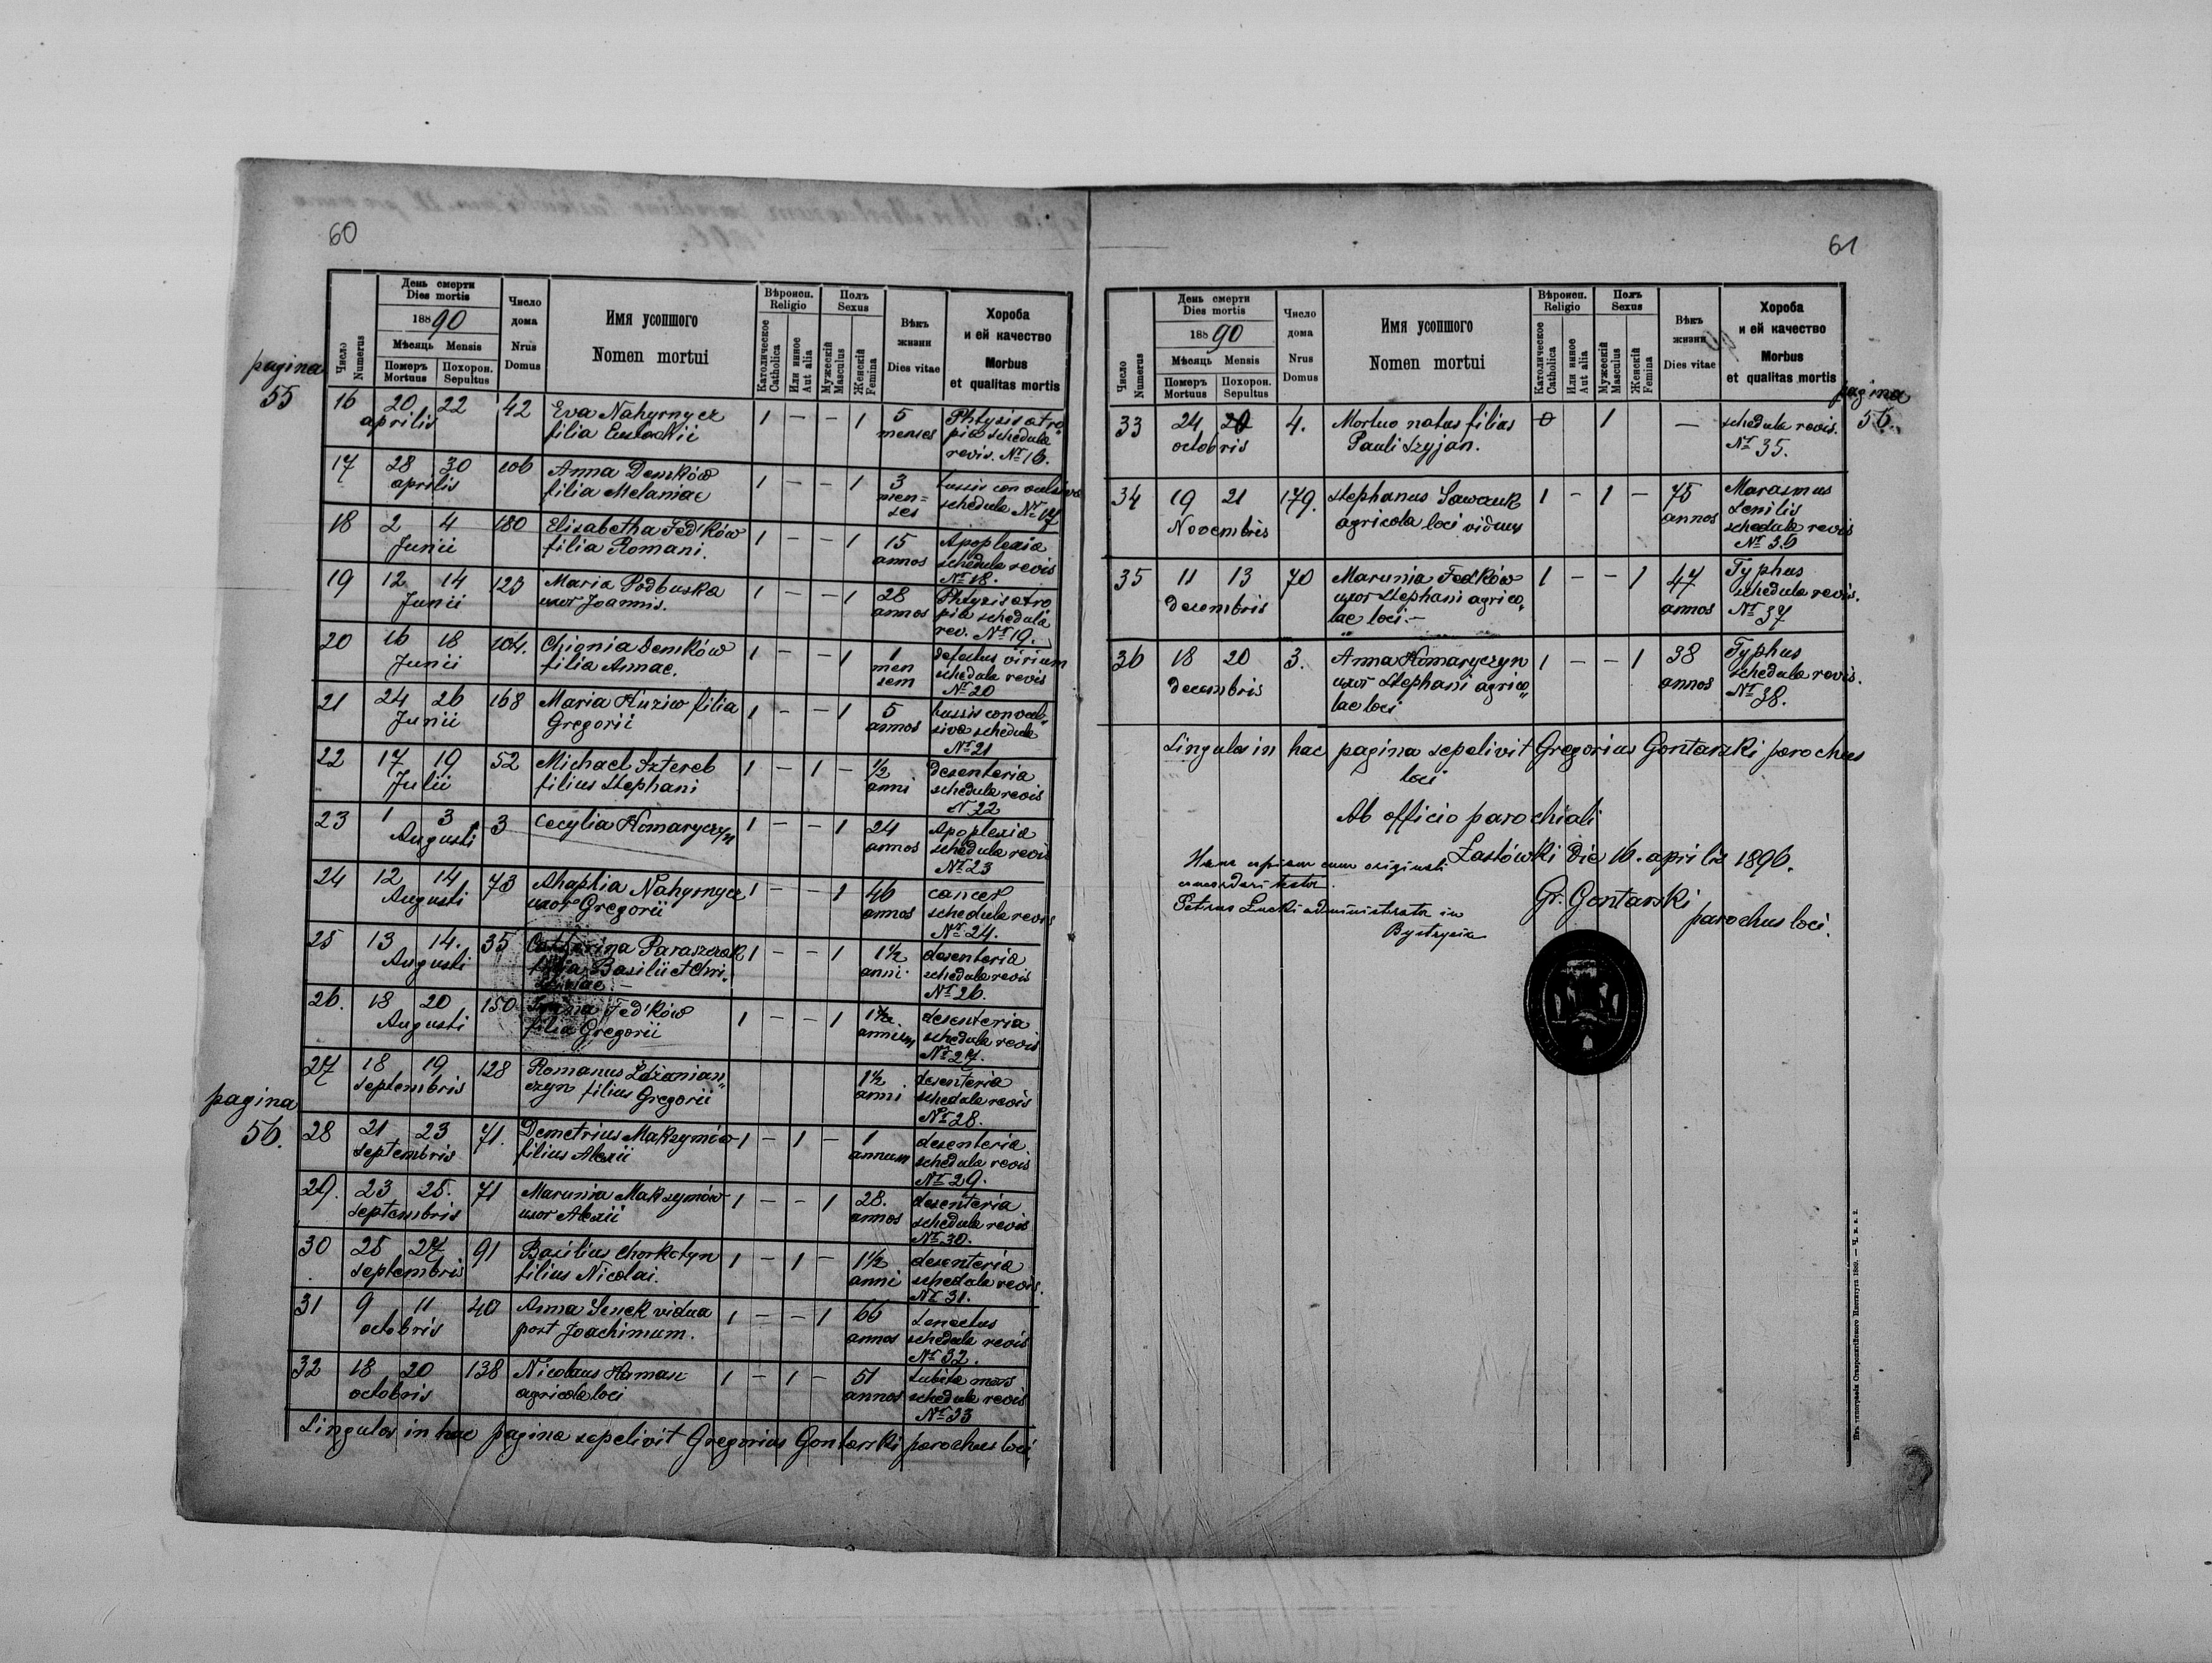 60
День смерти
Dies mortis
1890
Число Numerus
Мѣсяць Mensis
Померъ Mortuus
Похорон. Sepultus
Число дома
Nrus Domus
Имя усопшого
Nomen mortui
Вѣроисп. Religio
Католическое Catholica
Или инное Aut alia
Полъ Sexus
Мужескій Masculus
Женскій Femina
Вѣкъ жизни
Dies vitae
Хороба и ей качество
Morbus et qualitas mortis
pagina
55
16 20 22 42 Eva Nahyrnycz 1 — — 1 5 Phtysis atro
aprilis filia Eustachii menses pia schedula
revis. Nr 16.
17 28 30 106 Anna Demków 1 — — 1 3 tussis convulsiva
aprilis filia Melaniae men= schedula Nr 17
ses
18 2 4 180 Elisabetha Fed'ków 1 — — 1 15 Apoplexia
Junii filia Romani. annos schedula revis
Nr 18.
19 12 14 123 Maria Podbuska 1 — — 1 28 Phtysis atro
Junii uxor Joannis. annos pia schedula
rev. Nr 19.
20 16 18 104. Chionia Demków 1 — — 1 1 defectus virium
Junii filia Annae. men schedula revis
sem Nr 20
21 24 26 168 Maria Kuziw filia 1 — — 1 5 tussis convul„
Junii Gregorii annos siva schedula
Nr 21
22 17 19 52 Michael Sztereb 1 — 1 — ½ desenteria
Julii filius Stephani anni schedula revis
N 22
23 1 3 3 Cecylia Komaryczyn 1 — — 1 24 Apoplexia
Augusti annos schedula revis
Nr 23
24 12 14 73 Ahaphia Nahyrnycz 1 — — 1 46 cancer
Augusti uxor Gregorii annos schedula revis
Nr 24.
25 13 14. 35 Catharina Paraszczak 1 — — 1 1½ desenteria
Augusti filia Basilii et anni schedula revis
Nr 26.
26. 18 20 150 Fed'ków 1 — — 1 desenteria
Augusti filia Gregorii schedula revis
Nr 27.
27 18 19 128 Romanus Zdzanian„ 1½ desenteria
septembris czyn filius Gregorii anni schedula revis
Nr 28.
pagina
56.
28 21 23 71. Demetrius Maksymów 1 — 1 — 1 desenteria
septembris filius Alexii annum schedula revis
Nr 29.
29. 23 25. 71 Marunia Maksymów 1 — — 1 28. desenteria
septembris uxor Alexii annos schedula revis
Nr 30.
30 25 27 91 Basilius Chorkotyn 1 — 1 — 1½ desenteria
septembris filius Nicolai. anni schedula revis.
Nr 31.
31 9 11 40 Anna Senek vidua 1 — — 1 66 senectus
octobris post Joachimum. annos schedula revis
Nr 32.
32 18 20 138 Nicolaus Haman 1 — 1 — 51 subita mors
octobris agricola loci annos schedula revis
Nr 33
Singulos in hac pagina sepelivit Gregorius Gontarski parochus loci.
61
День смерти
Dies mortis
1890
Число Numerus
Мѣсяць Mensis
Померъ Mortuus
Похорон. Sepultus
Число дома
Nrus Domus
Имя усопшого
Nomen mortui
Вѣроисп. Religio
Католическое Catholica
Или инное Aut alia
Полъ Sexus
Мужескій Masculus
Женскій Femina
Вѣкъ жизни
Dies vitae
Хороба и ей качество
Morbus et qualitas mortis
pagina
56.
33 24 4. Mortuo natus filius 0 1 — schedula revis.
octobris Pauli Szyjan. Nr 35.
34 19 21 179. Stephanus Sawczuk 1 — 1 — 75 Marasmus
Novembris agricola loci viduus annos senilis
schedula revis
Nr 36
35 11 13 70 Marunia Fedków 1 — — 1 47 Typhus
decembris uxor Stephani agrico„ annos schedula revis.
lae loci.— Nr 37
36 18 20 3. Anna Komaryczyn 1 — — 1 38 Typhus
decembris uxor Stephani agrico„ annos schedula revis.
lae loci Nr 38.
Singulos in hac pagina sepelivit Gregorius Gontarski parochus
loci
Ab officio parochiali
Łastówki die 16. aprilis 1896.
Hanc copiam cum originali
concordari testor.
Petrus Łucki administrator in
Bystrycia
Gr. Gontarski
parochus loci.
Изъ типографіи Ставропигійского Института 1889. — Ч. к. в. 2.